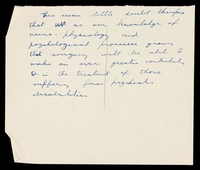 There seems little doubt therefore
that as our knowledge of
neuro-physiology and
psychological processes grows
that surgery will be able to
make an even greater contribution
in the treatment of those
suffering from psychiatric
disabilities